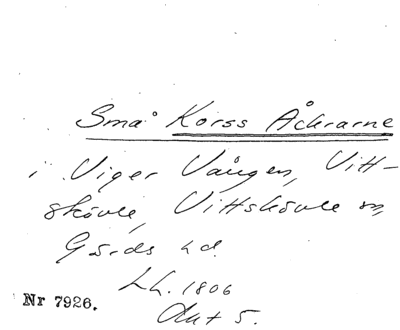 Små Korss Åckrarne
i Viger Vången, Vitt-
skövle, Vittskövle sn,
Gärds hd.
Lh. 1806
Akt 5.
Nr 7926.